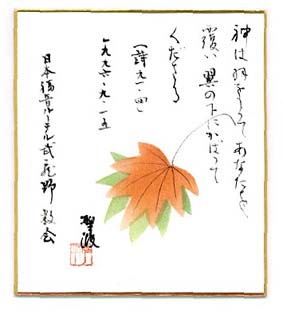 神は羽をもってあなたを
覆い 翼の下にかばって
くださる
(詩九一・四)
一九九六・九・一五
日本福音ルーテル武蔵野教会